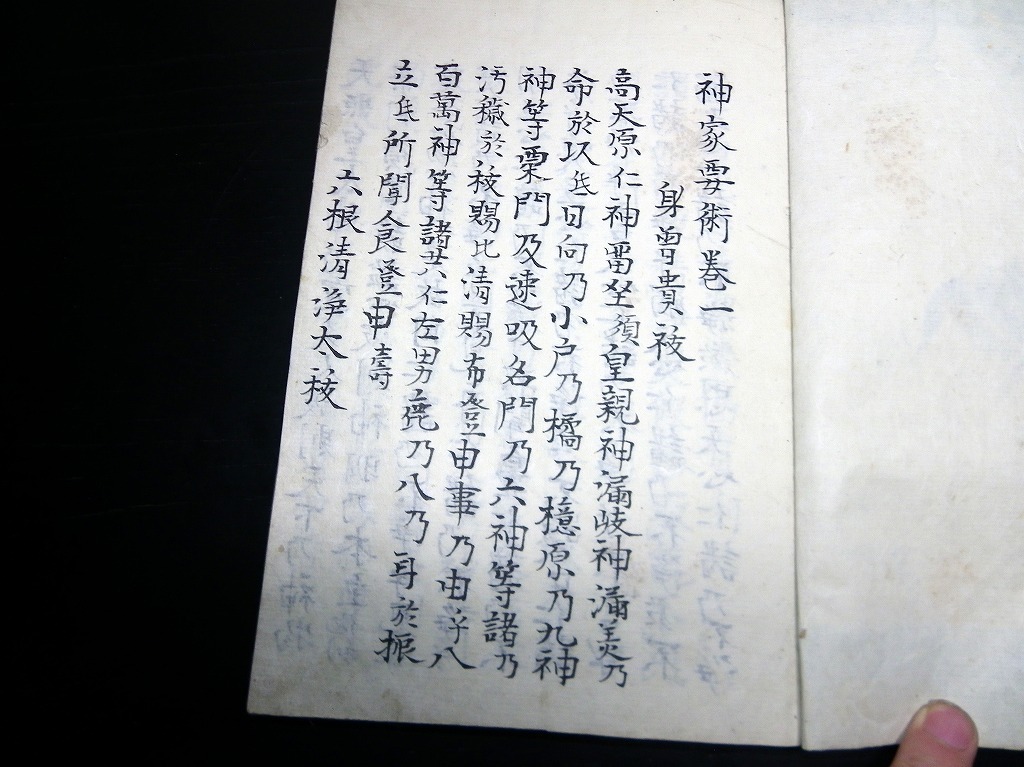 神家要術巻一
身曽貴祓
高天原仁神畱坐須皇親神漏岐神漏美乃
命於以氐日向乃小戸乃橘乃檍原乃九神
神等粟門及速吸名門乃六神等諸乃
汚穢於祓賜比清賜布登申事乃由乎八
百萬神等諸共仁左男鹿乃八乃耳於振
立氐所聞食登申壽
六根清浄大祓